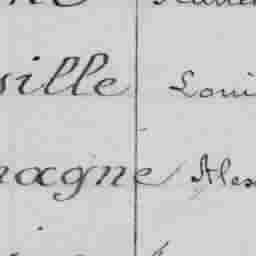 ville Loui
magne Alex